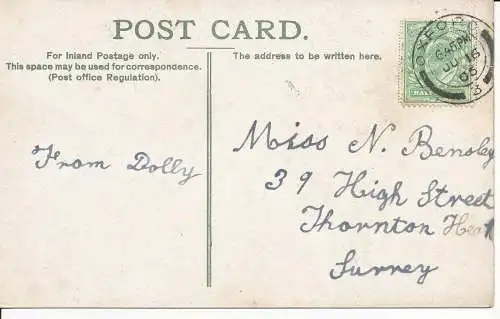 POST CARD.
For Inland Postage only.
This space may be used for correspondence.
(Post office Regulation).
The address to be written here.
OXFORD
6.45PM
JU 16
05
3
HALF
From Dolly
Miss N. Bensley
39 High Street
Thornton Heath
Surrey